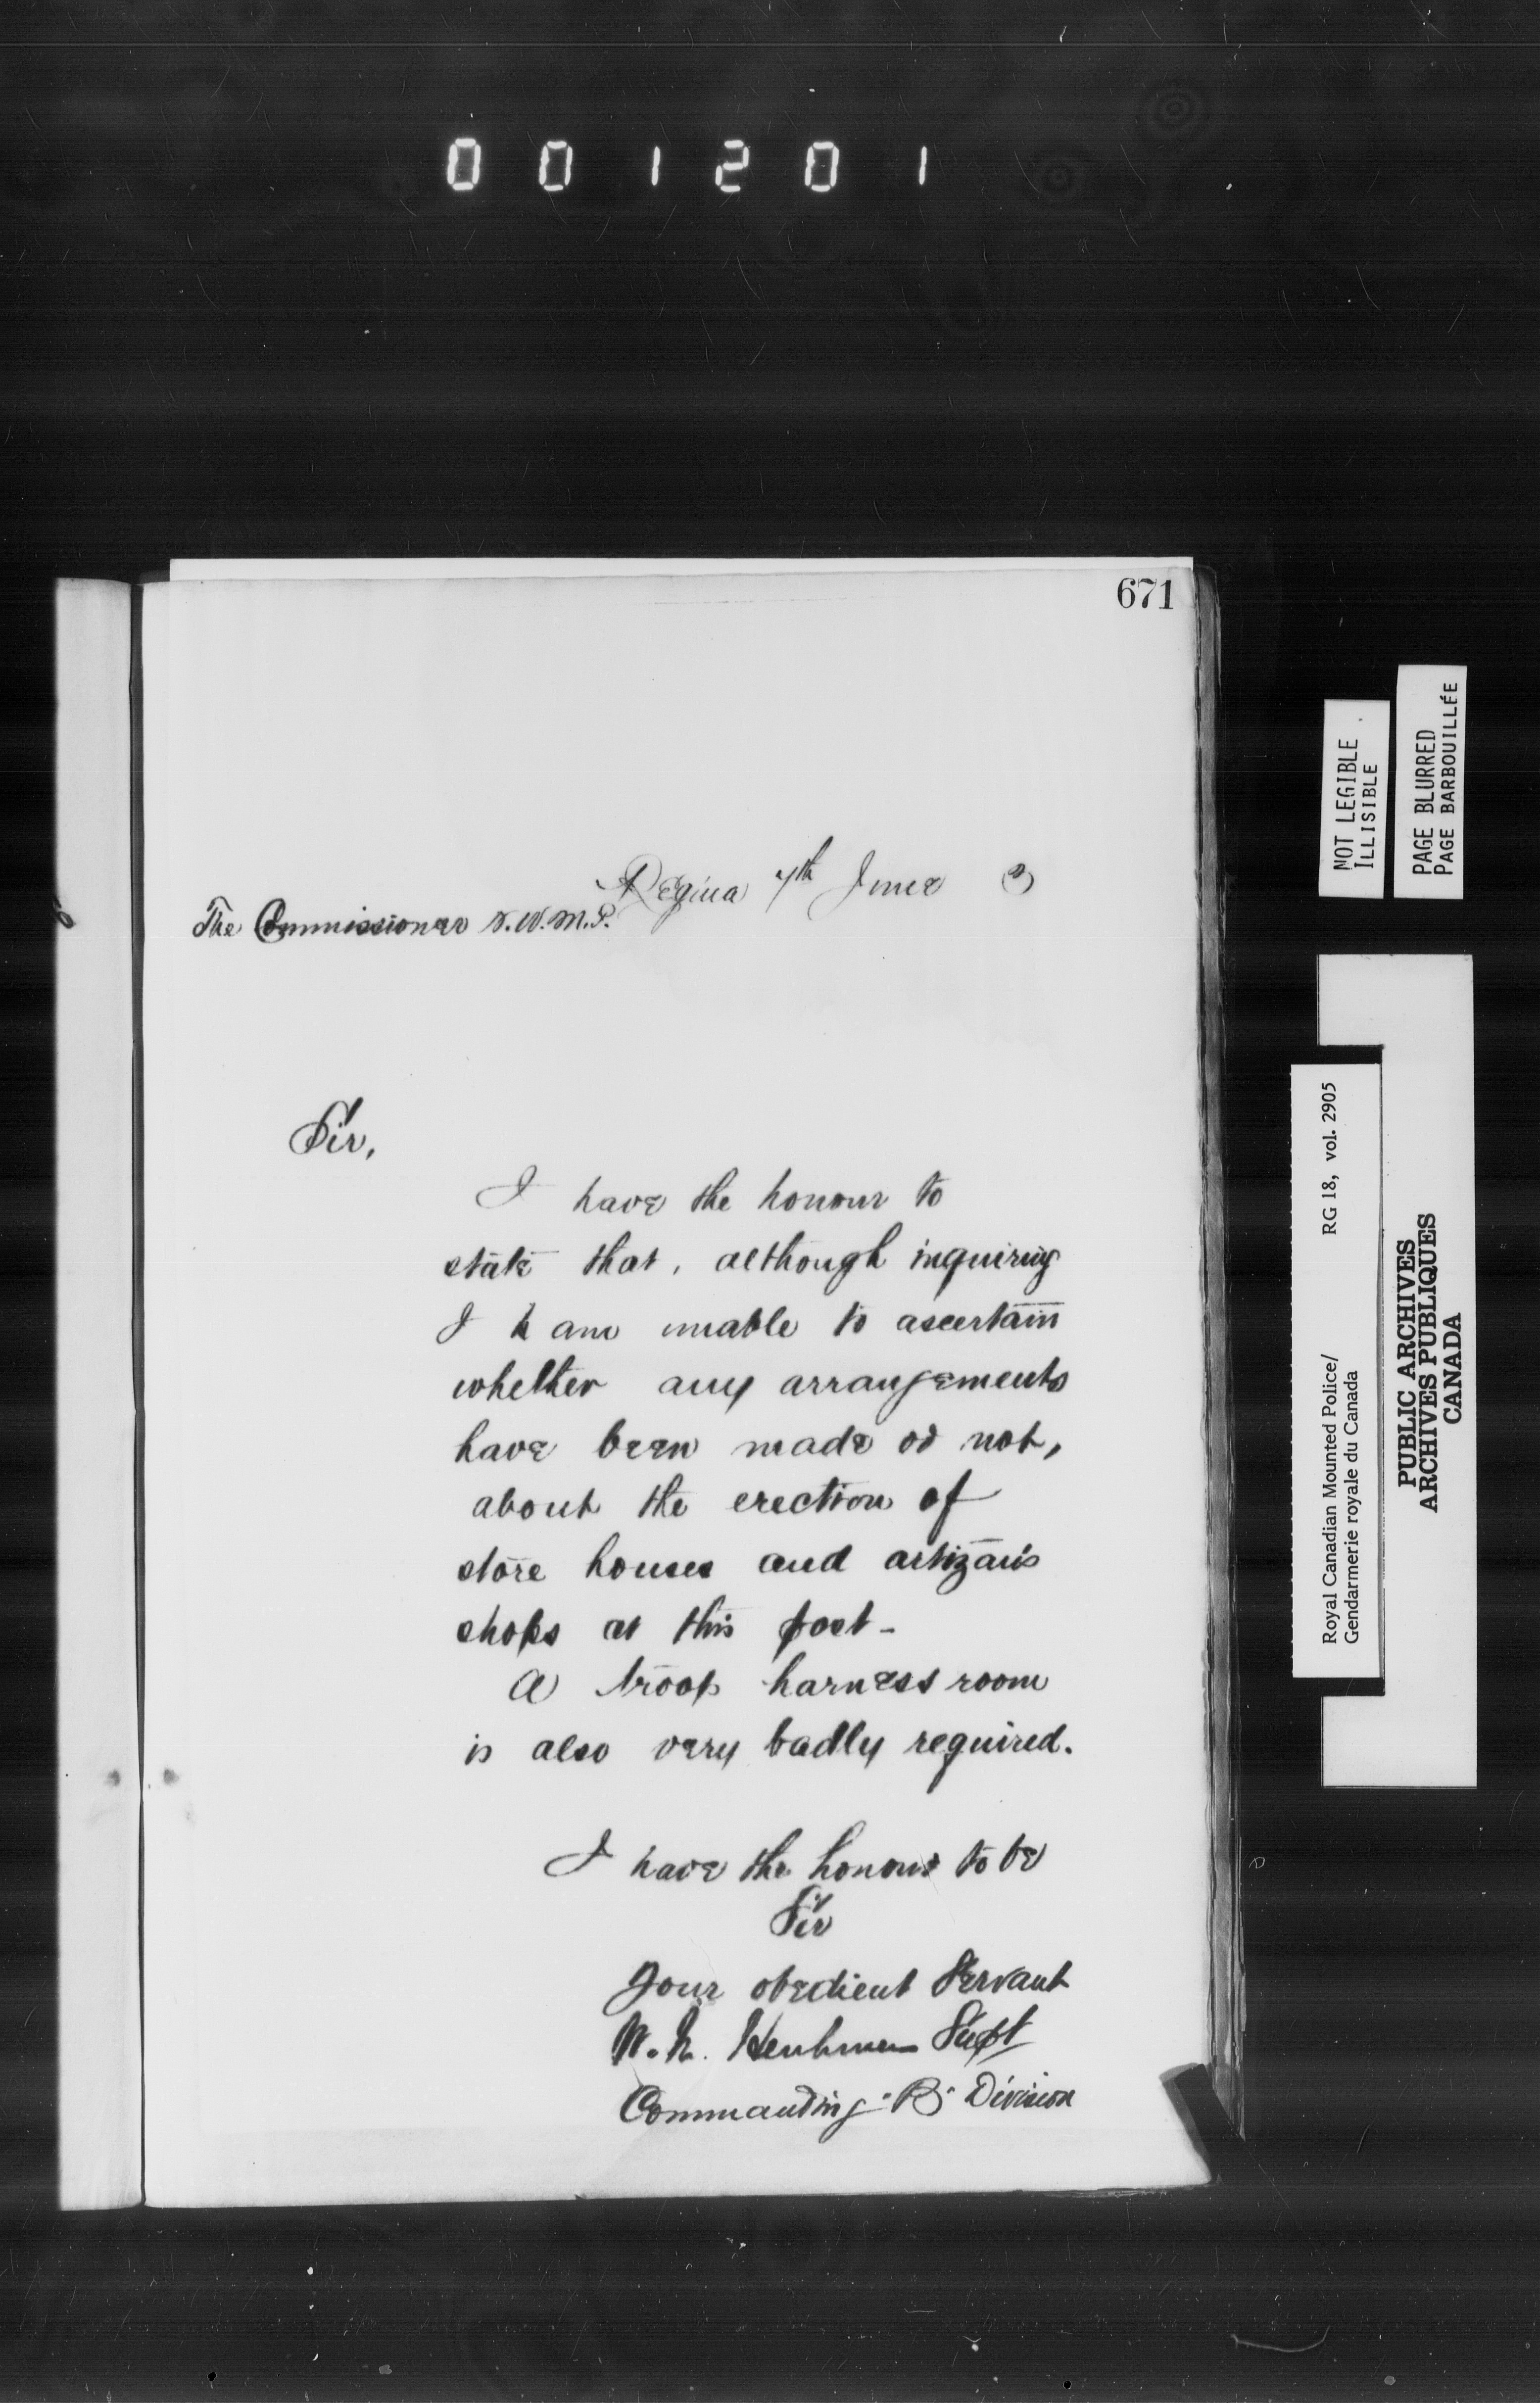 001201
671
Regina 7th June 3
The Commissioner N.W.M.P.
Sir,
I have the honour to
state that, although inquiring
I h am unable to ascertain
whether any arrangements
have been made or not,
about the erection of
store houses and artizan's
shops at this post -
A troop harness room
is also very badly required.
I have the honour to be
Sir
Your obedient Servant
Supt
Commanding "B" Division
NOT LEGIBLE
ILLISIBLE
PAGE BLURRED
PAGE BARBOUILLÉE
Royal Canadian Mounted Police/ RG 18, vol. 2905
Gendarmerie royale du Canada
PUBLIC ARCHIVES
ARCHIVES PUBLIQUES
CANADA